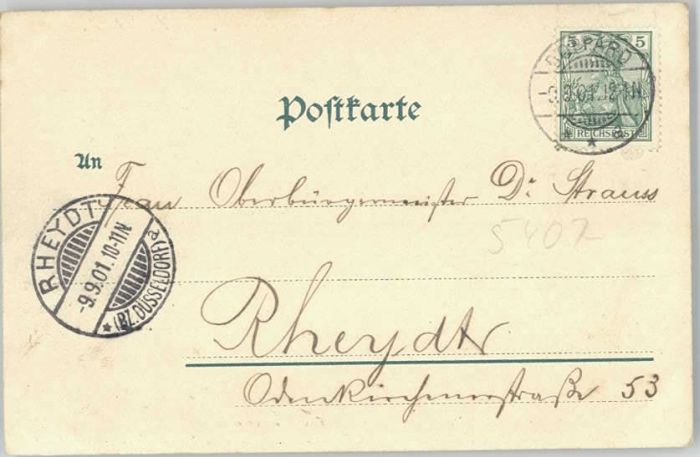 5 5
BOPPARD
9.9.01. 12-1N
* * a
REICHSPOST
Postkarte
An
Frau Oberbürgermeister Dr. Strauss
5402
RHEYDT
-9.9.01.10-11N
*(BZ.DÜSSELDORF)a
Rheydt
Odenkirchenerstraße 53